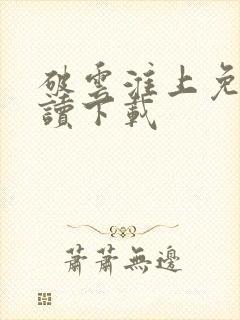 破雲淮上免
讀下載
蕭蕭無邊